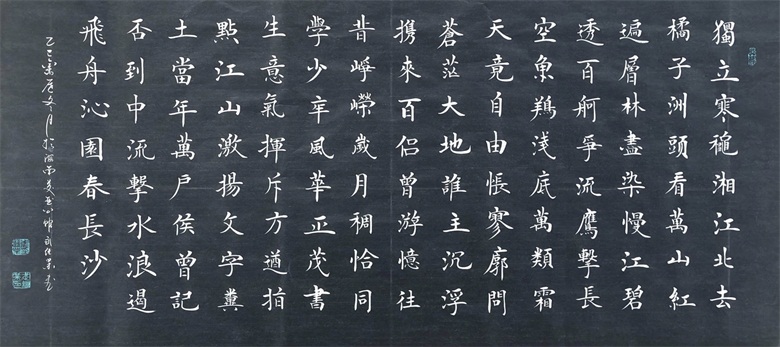 獨立寒穐湘江北去
橘子洲頭看萬山紅
遍層林盡染慢江碧
透百舸爭流鷹擊長
空魚淺底萬類霜
天竟自由悵寥廓問
蒼茫大地誰主沉浮
携來百侣曾游憶往
昔崢嶸歲月稠恰同
學少年風華正茂書
生意氣揮斥方遒指
點江山激揚文字糞
土當年萬戶侯曾記
否到中流擊水浪遏
飛舟沁園春長沙
乙巳冬月於